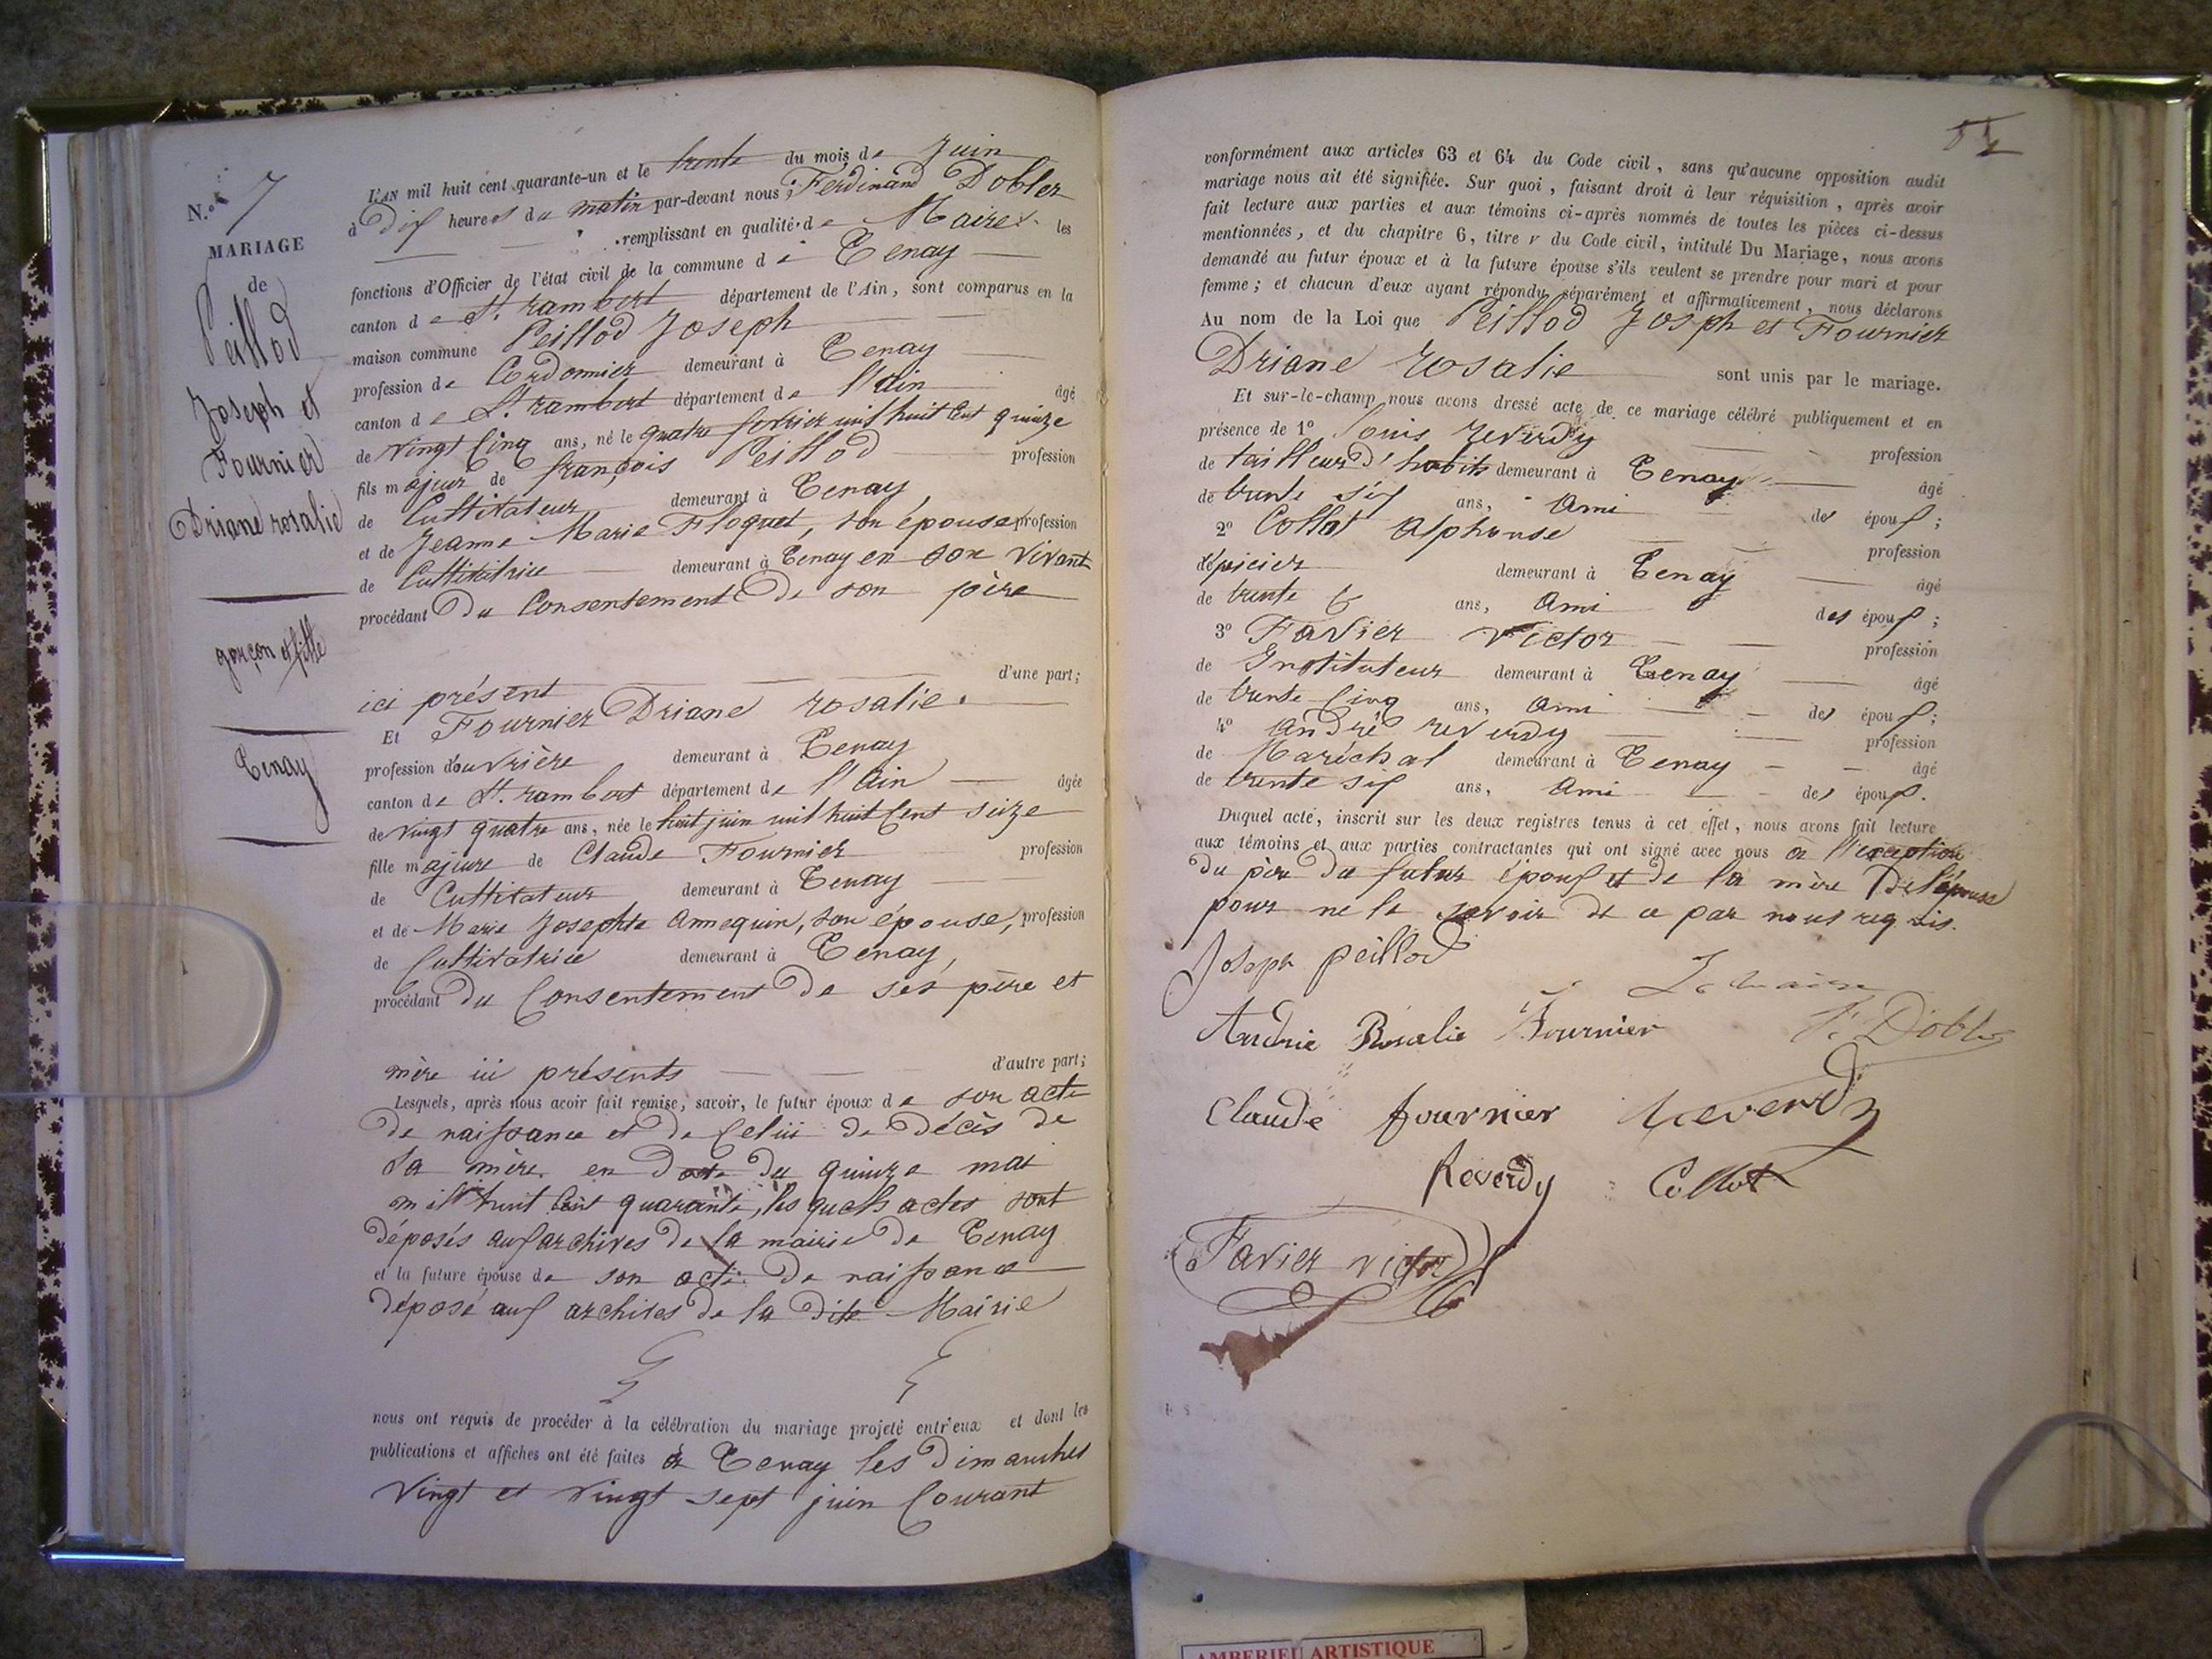 N.° 7
MARIAGE
de
Peillod
Joseph et
Fournier
Driane rosalie
garçon et fille
Tenay
L'AN mil huit cent quarante-un et le trente du mois de Juin
à Dix heures du matin par-devant nous, Ferdinand Dobler
remplissant en qualité de Maire les
fonctions d'Officier de l'état civil de la commune de Tenay
canton de St. rambert département de l'Ain, sont comparus en la
maison commune Peillod Joseph
profession de Cordonnier demeurant à Tenay
canton de St. rambert département de l'ain âgé
de vingt Cinq ans, né le quatre fevrier mil huit Cent quinze
fils majeur de françois Peillod profession
de Cultivateur demeurant à Tenay,
et de Jeanne Marie Floquet, son épouse profession
de Cultivatrice demeurant à Tenay en son vivant
procédant Du Consentement De son père
ici présent d'une part;
Et Fournier Driane rosalie.
profession d'ouvrière demeurant à Tenay
canton de St. rambert département de l'Ain âgée
de vingt quatre ans, née le huit juin mil huit Cent seize
fille majeure de Claude Fournier profession
de Cultivateur demeurant à Tenay
et de Marie Josephte Annequin, son épouse, profession
de Cultivatrice demeurant à Tenay,
procédant Du Consentement De ses père et
mère ici présents d'autre part;
Lesquels, après nous avoir fait remise, savoir, le futur époux de son acte
De naissance et De Celui De Décès De
Sa mère en Date Du quinze mai
mil huit Cent quarante, les quels actes sont
Déposés aux archives De la mairie De Tenay
et la future épouse de son acte De naissance
Déposé aux archives De la Dite Mairie
nous ont requis de procéder à la célébration du mariage projeté entr'eux et dont les
publications et affiches ont été faites à Tenay les Dimanches
vingt et vingt sept juin Courant
conformément aux articles 63 et 64 du Code civil, sans qu'aucune opposition audit
mariage nous ait été signifiée. Sur quoi, faisant droit à leur réquisition, après avoir
fait lecture aux parties et aux témoins ci-après nommés de toutes les pièces ci-dessus
mentionnées, et du chapitre 6, titre v du Code civil, intitulé Du Mariage, nous avons
demandé au futur époux et à la future épouse s'ils veulent se prendre pour mari et pour
femme; et chacun d'eux ayant répondu séparément et affirmativement, nous déclarons
Au nom de la Loi que Peillod Josph et Fournier
Driane Rosalie sont unis par le mariage.
Et sur-le-champ nous avons dressé acte de ce mariage célébré publiquement et en
présence de 1° Louis Reverdy profession
de tailleur D'habits demeurant à Tenay âgé
de trente six ans, Ami des époux;
2° Collot Alphonse profession
d'épicier demeurant à Tenay âgé
de trente ans, Ami des époux;
3° Favier Victor profession
de Instituteur demeurant à Tenay âgé
de trente Cinq ans, Ami des époux;
4° André Reverdy profession
de Maréchal demeurant à Tenay âgé
de trente six ans, Ami des époux.
Duquel acte, inscrit sur les deux registres tenus à cet effet, nous avons fait lecture
aux témoins et aux parties contractantes qui ont signé avec nous à l'exception
Du père Du futur époux et De la mère De l'épouse
pour ne le savoir de ce par nous requis.
Joseph peillod
Le maire
Audrie Rosalie Fournier F. Dobler
Claude fournier Reverdy
Reverdy Collot
Favier victor
AMBERIEU ARTISTIQUE